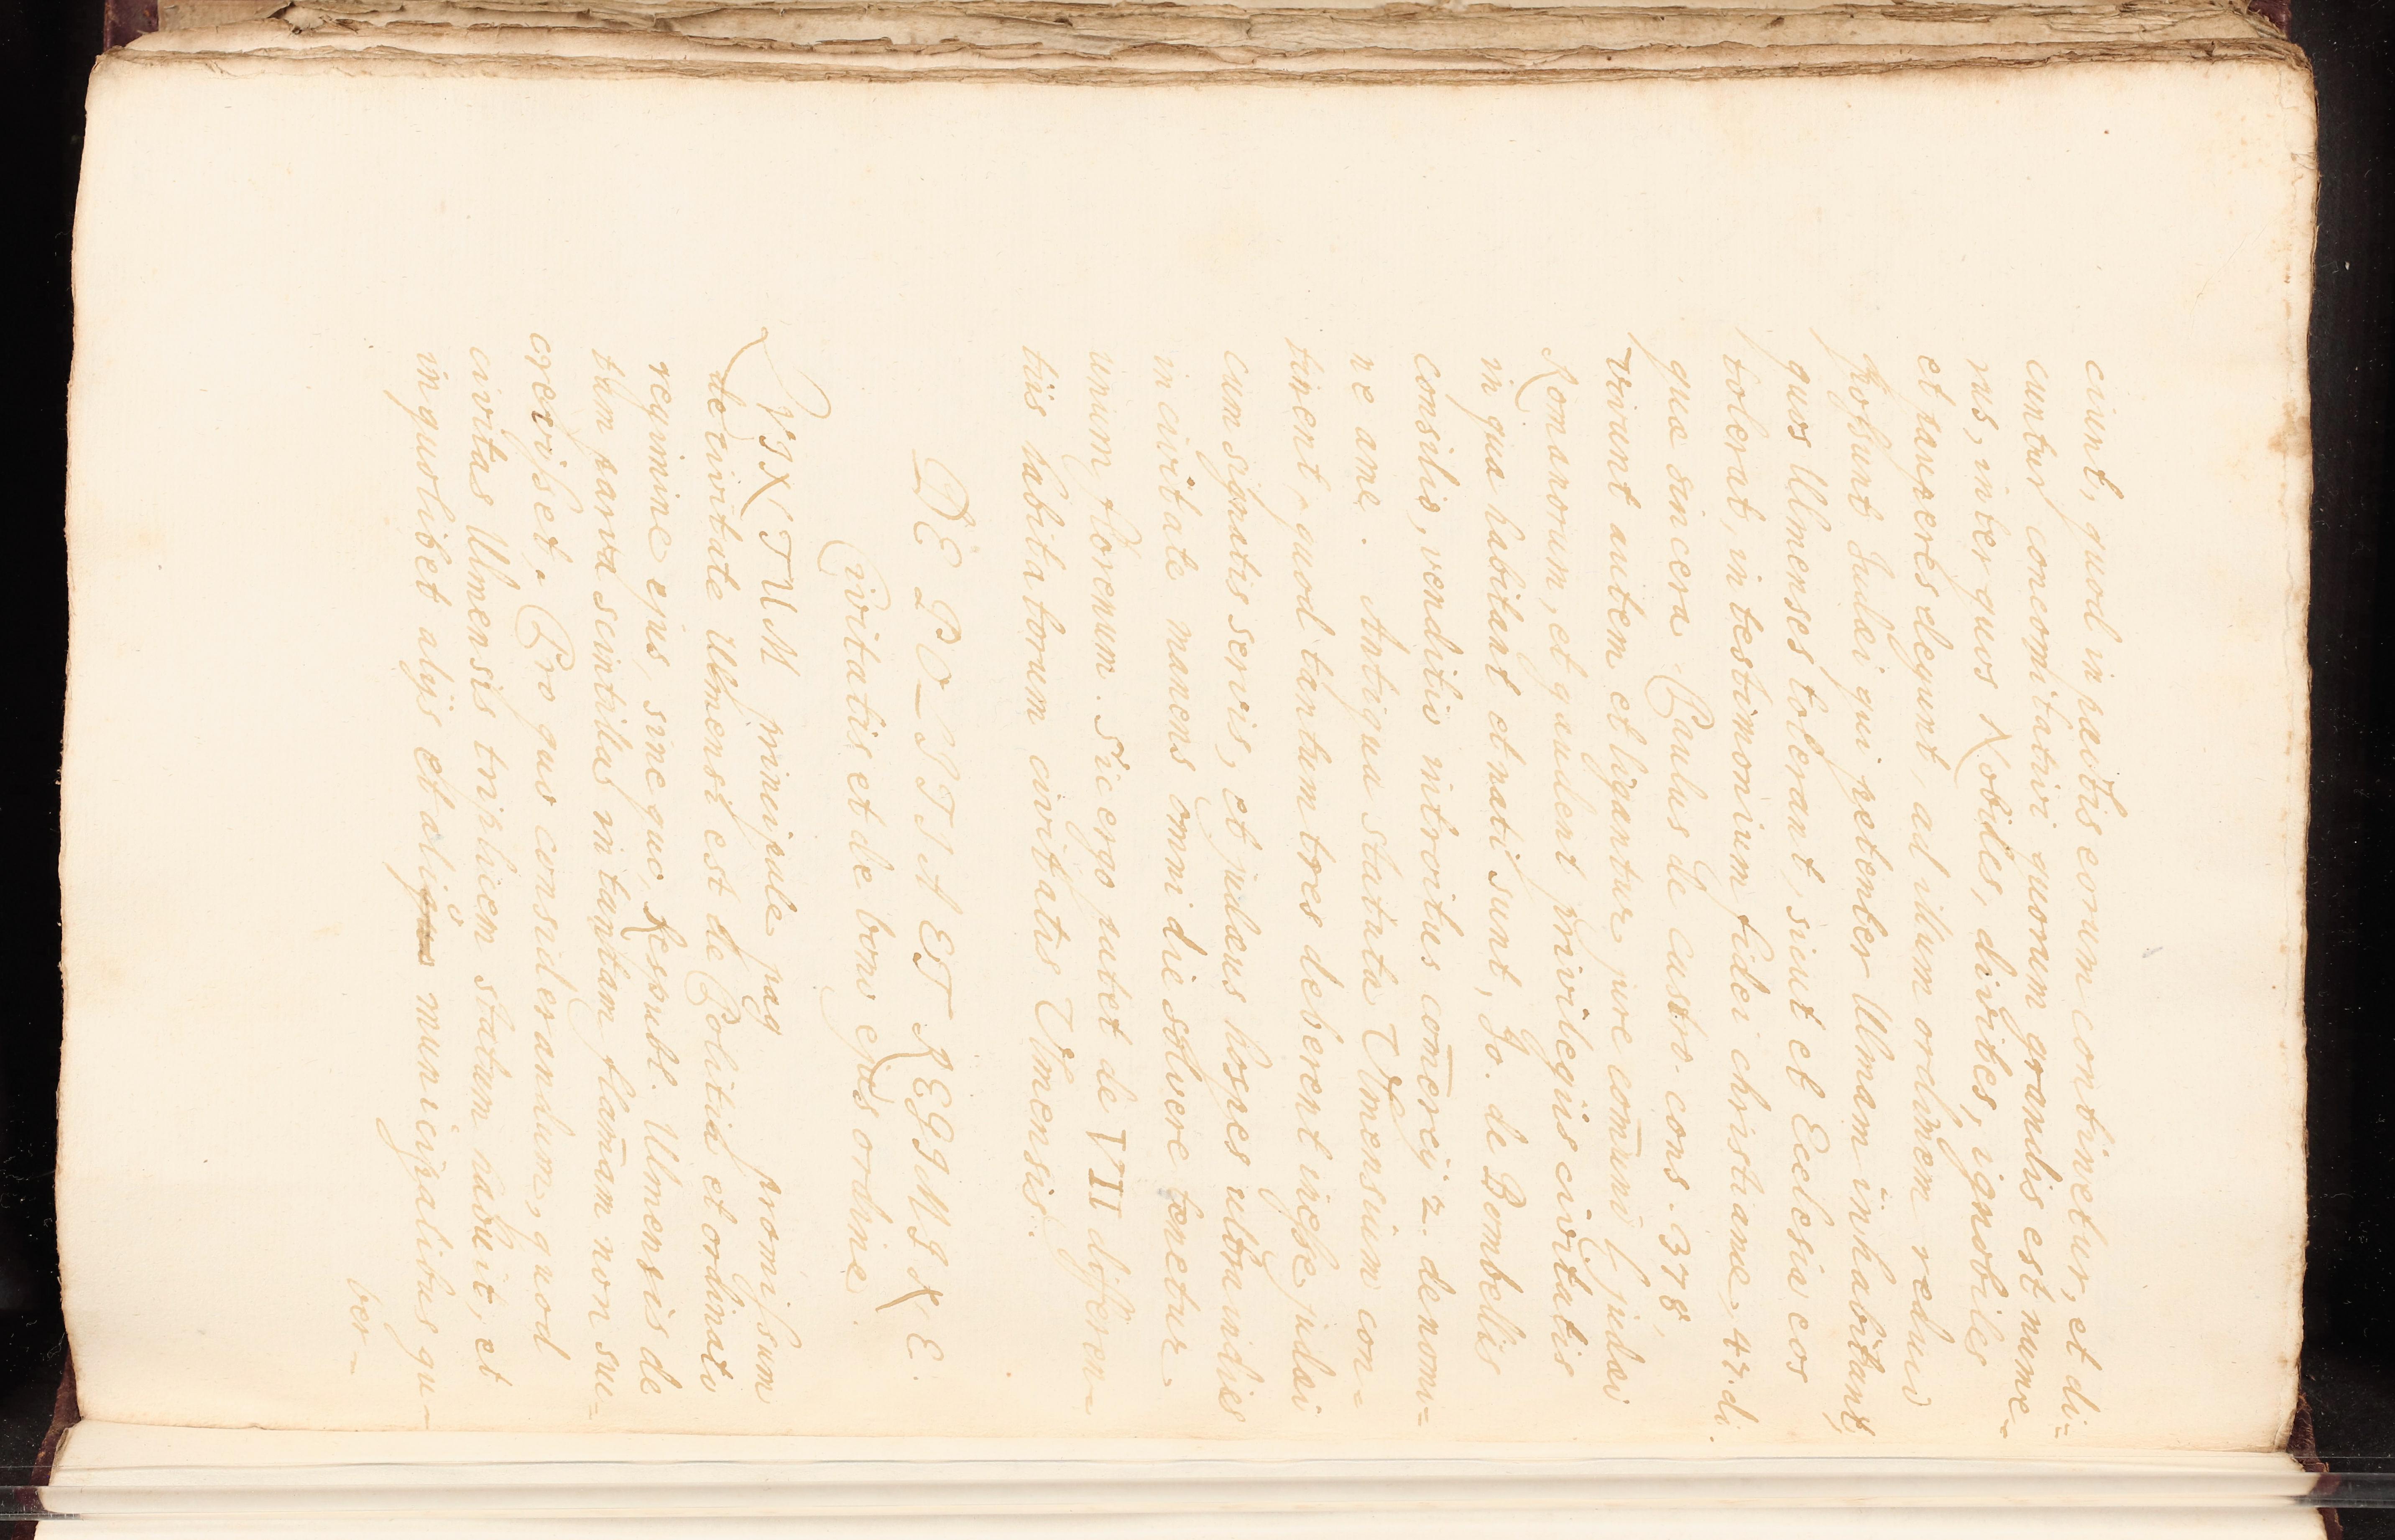 ciunt, quod in pactis eorum continetur, et di=
cuntur concomitativi quorum grandis est nume=
rus, inter quos Nobiles, divites, ignobiles
et pauperes degunt, ad illum ordinem reduco
possunt Judæi qui petenter Ulmam inhabitant,
quos Ulmenses tolerant, sicut et Ecclesia eos
tolerat, in testimonium fidei christianæ, 47. di.
qua sincera Paulus de castro. cons. 378,
vivunt autem et ligantur jure com̄uni judæi
Romanorum, et gaudent privilegiis civitatis
in qua habitant et nati sunt, Jo. de Bombellis
consilio, venditio introitus com̄ercij 2. denomi=
ne ame. Antiqua statuta Ulmensium con=
tinent, quod tantum tres deberent inesse judæi
cum signatis servis, et judæus hospes ultra indies
in civitate manens omni die solvere tenetur
unum florenum. Sic ergo patet de VII differen=
tiis habitatorum civitatis Ulmensis.
DE POSITIA ET REGIMINE.
Civitatis et de bono ejus ordine.
SIXTUM principale pag promissum
de civitate Ulmensi est de Politia et ordinato
regimine ejus, sine quo, Respubl. Ulmensis de
tam parva scintilla in tantam flam̄am non su=
crevisset. Pro quo considerandum, quod
civitas Ulmensis triplicem statum habuit, et
in quolibet alijs et alijs municipalibus gu=
ber=